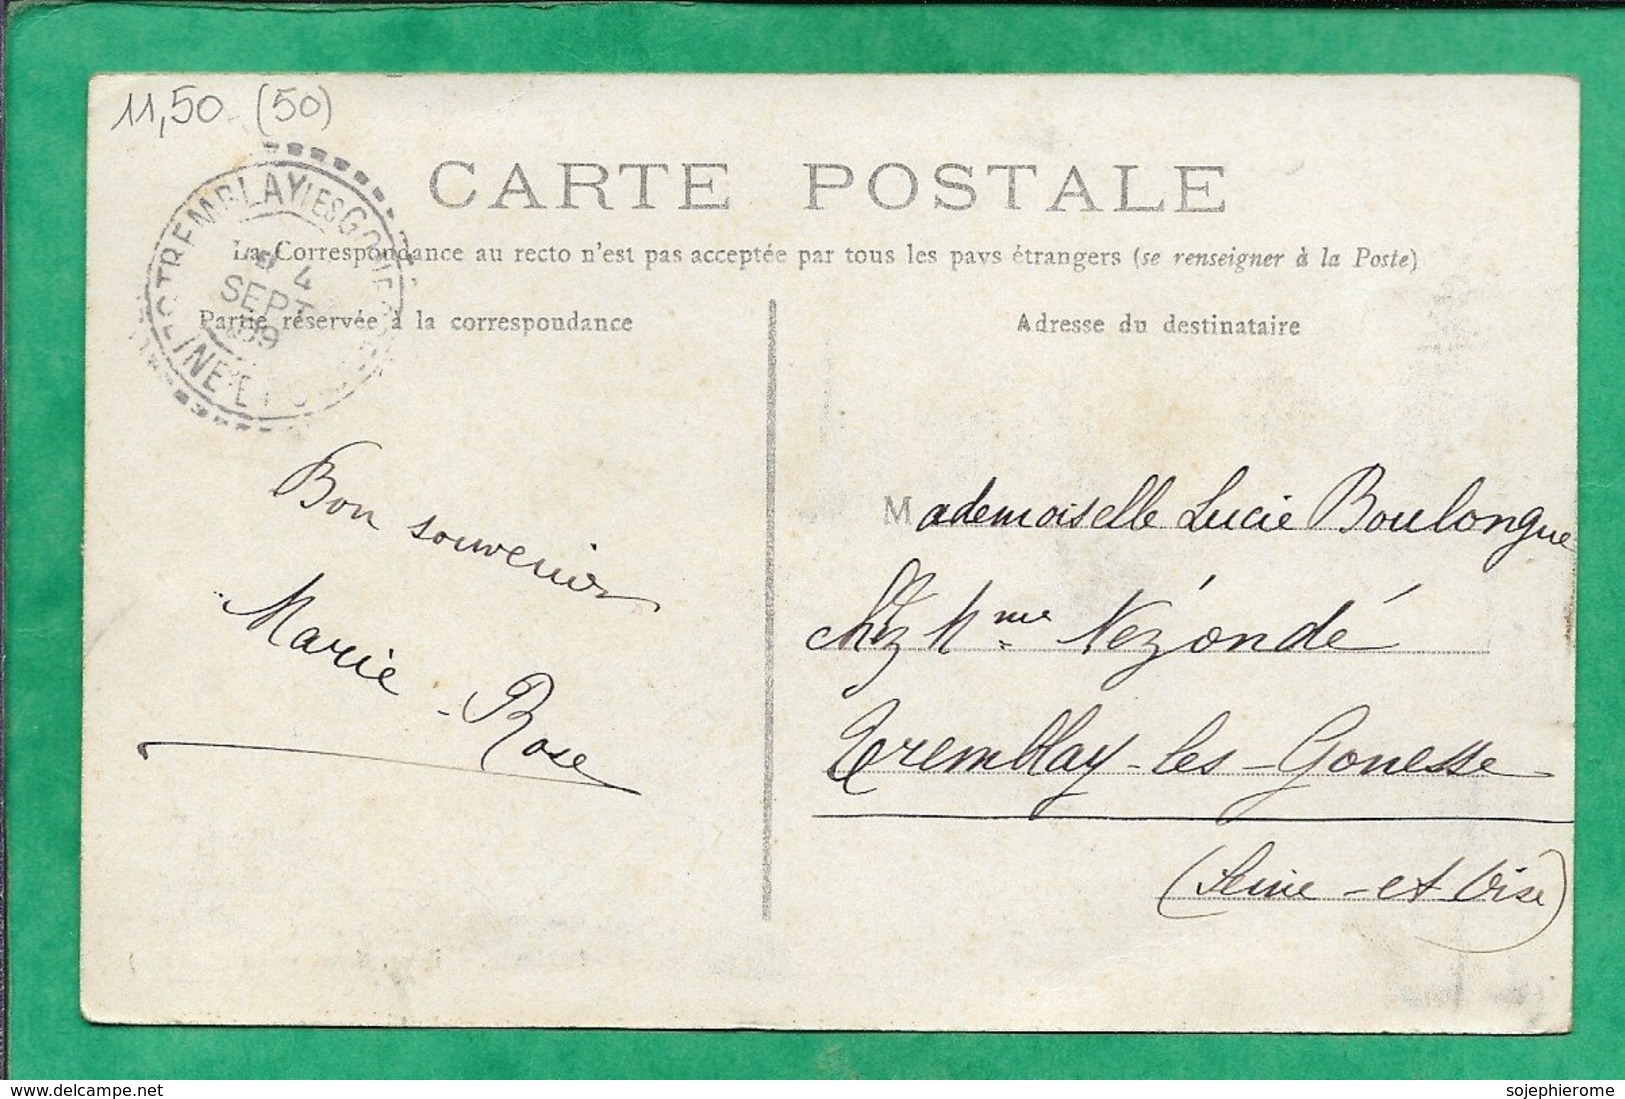 11,50 (50)
CARTE POSTALE
La Correspondance au recto n'est pas acceptée par tous les pays étrangers (se renseigner à la Poste)
TREMBLAY LES GO
4
SEPT
09
SEINE ET
Partie réservée à la correspondance
Adresse du destinataire
Bon souvenir
Marie-Rose
Mademoiselle Lucie Boulongue
chez Mme Nézondé
Tremblay-les-Gonesse
(Seine-et Oise)
www.delcampe.net
sojephierome